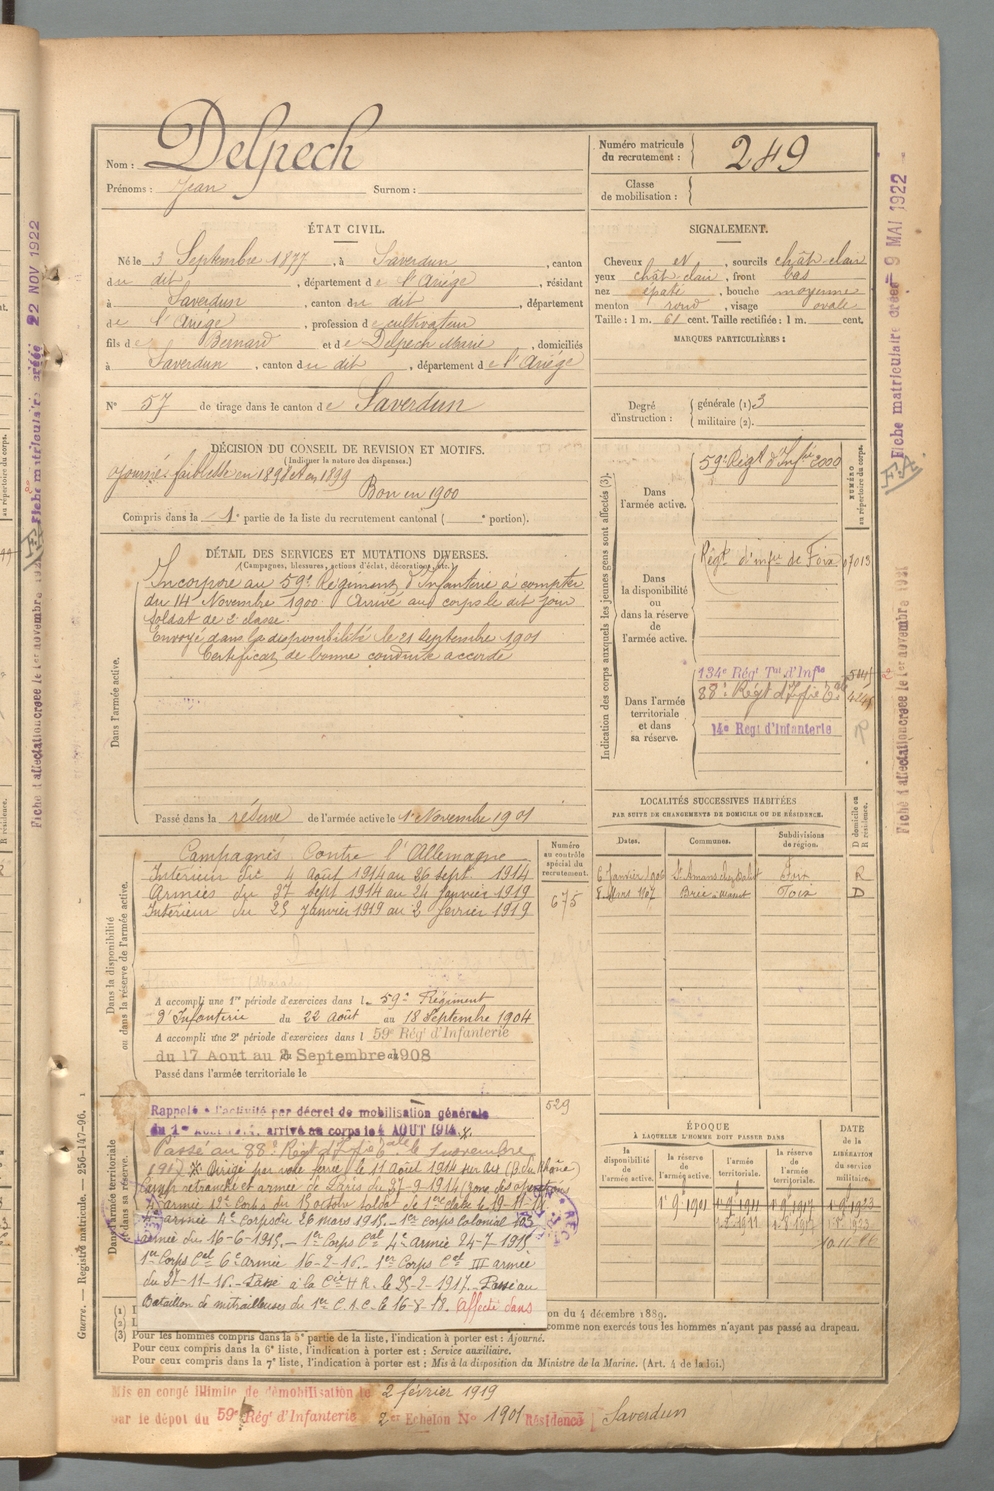 Nom : Delpech
Prénoms : Jean Surnom :
Numéro matricule
du recrutement : 249
Classe
de mobilisation :
ÉTAT CIVIL.
Né le 3 Septembre 1877, à Saverdun, canton
du dit, département de l'Ariège, résidant
à Saverdun, canton du dit, département
de l'Ariège, profession de cultivateur
fils de Bernard et de Delpech Marie, domiciliés
à Saverdun, canton du dit, département de l'Ariège
N° 57 de tirage dans le canton de Saverdun
SIGNALEMENT.
Cheveux N, sourcils chât-clair
yeux chât-clair, front bas
nez épaté, bouche moyenne
menton rond, visage ovale
Taille : 1 m. 61 cent. Taille rectifiée : 1 m. cent.
MARQUES PARTICULIÈRES :
Degré
d'instruction :
générale (1) 3
militaire (2).
DÉCISION DU CONSEIL DE REVISION ET MOTIFS.
(Indiquer la nature des dispenses.)
Ajourné faiblesse en 1898 et en 1899
Bon en 1900
Compris dans la 1e partie de la liste du recrutement cantonal ( e portion).
DÉTAIL DES SERVICES ET MUTATIONS DIVERSES.
(Campagnes, blessures, actions d'éclat, décorations, etc.)
Dans l'armée active.
Incorporé au 59e Régiment d'Infanterie à compter
du 14 Novembre 1900 Arrivé au corps le dit jour
Soldat de 2e classe.
Envoyé dans la disponibilité le 21 Septembre 1901
Certificat de bonne conduite accordé
Passé dans la réserve de l'armée active le 1er Novembre 1901
Indication des corps auxquels les jeunes gens sont affectés (3).
NUMÉRO
au répertoire du corps.
Dans
l'armée active.
59e Régt d'Infrie 2000
Dans
la disponibilité
ou
dans la réserve
de
l'armée active.
Régt d'infie de Foix 07013
Dans l'armée
territoriale
et dans
sa réserve.
134e Régt Tal d'Infie
88e Régt d'Infie
14e Régt d'Infanterie
R
LOCALITÉS SUCCESSIVES HABITÉES
PAR SUITE DE CHANGEMENTS DE DOMICILE OU DE RÉSIDENCE.
Dates. Communes. Subdivisions
de région.
D domicile ou
R résidence.
6 Janvier 1906 St Amans Foix R
8 Mars 1907 Brie Foix D
Dans la disponibilité
ou dans la réserve de l'armée active.
Numéro
au contrôle
spécial du
recrutement.
675
Campagnes Contre l'Allemagne
Intérieur du 4 août 1914 au 26 sept. 1914
Armées du 27 sept 1914 au 24 janvier 1919
Intérieur du 25 janvier 1919 au 2 février 1919
A accompli une 1re période d'exercices dans l 59e Régiment
d'Infanterie du 22 Août au 18 Septembre 1904
A accompli une 2e période d'exercices dans l 59e Rég d'Infanterie
du 17 Aout au Septembre 1908
Passé dans l'armée territoriale le
529
Dans l'armée territoriale
et dans sa réserve.
Rappelé à l'activité par décret de mobilisation générale
du 1er Août 1914. arrivé au corps le 4 AOUT 1914
Passé au 88e Régt d'Infie le 1 novembre
Dirigé par voie ferrée le 11 Août 1914 sur (B. du Rhône)
Camp retranché et armée de Paris du 27-9-1914 (zone des opérations
armée 4e Corps du 26 mars 1915 - 1er Corps Colonial
armée du 16-6-1915 - 1er Corps Cal 4e armée 24-7-1915
1er Corps Cal 6e armée 16-2-16. 1er Corps Cal III armée
du 27-11-16. Passé à la Cie H R. le 25-2-1917. Passé au
Bataillon de mitrailleuses du 1er C.A.C. le 16-8-18. Affecté dans
ÉPOQUE
À LAQUELLE L'HOMME DOIT PASSER DANS
la
disponibilité
de
l'armée active.
la réserve
de
l'armée active.
l'armée
territoriale.
la réserve
de
l'armée
territoriale.
DATE
de la
LIBÉRATION
du service
militaire.
on du 4 décembre 1889.
comme non exercés tous les hommes n'ayant pas passé au drapeau.
(3) Pour les hommes compris dans la 5e partie de la liste, l'indication à porter est : Ajourné.
Pour ceux compris dans la 6e liste, l'indication à porter est : Service auxiliaire.
Pour ceux compris dans la 7e liste, l'indication à porter est : Mis à la disposition du Ministre de la Marine. (Art. 4 de la loi.)
Mis en congé illimité de démobilisation le 2 février 1919
par le dépôt du 59e Rég d'Infanterie 2 er Echelon N° 1901 Résidence Saverdun
Guerre. — Registre matricule. — 256-147-96.
Fiche matriculaire créée 9 MAI 1922
F.A.
Fiche d'affectation créée le 1er novembre 1921
Fiche matriculaire créée 22 NOV 1922
Fiche d'affectation créée le 1er novembre